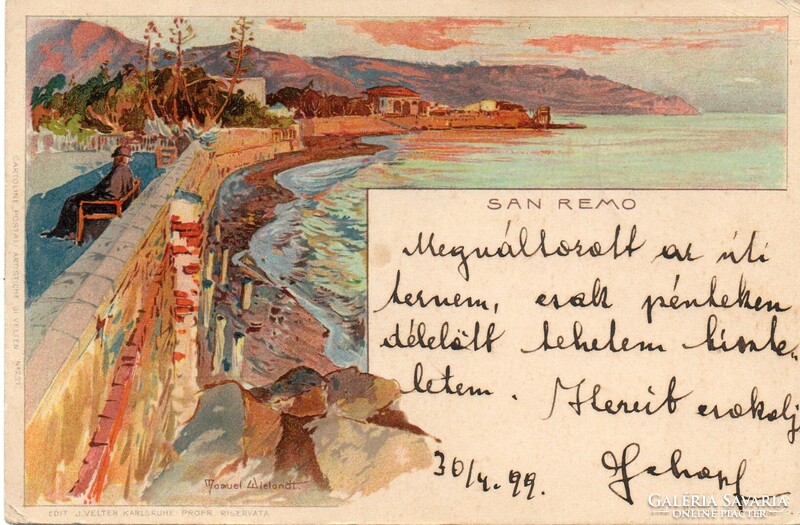 SAN REMO
Megváltozott az úti
tervem, csak pénteken
délelőtt tehetem tiszte-
letem.
csókolj
30/4. 99.
Manuel Wielandt
EDIT J. VELTEN KARLSRUHE PROPR. RISERVATA
CARTOLINE POSTALI ARTISTICHE DI VELTEN
GALERIA SAVARIA
ONLINE PIACTÉR